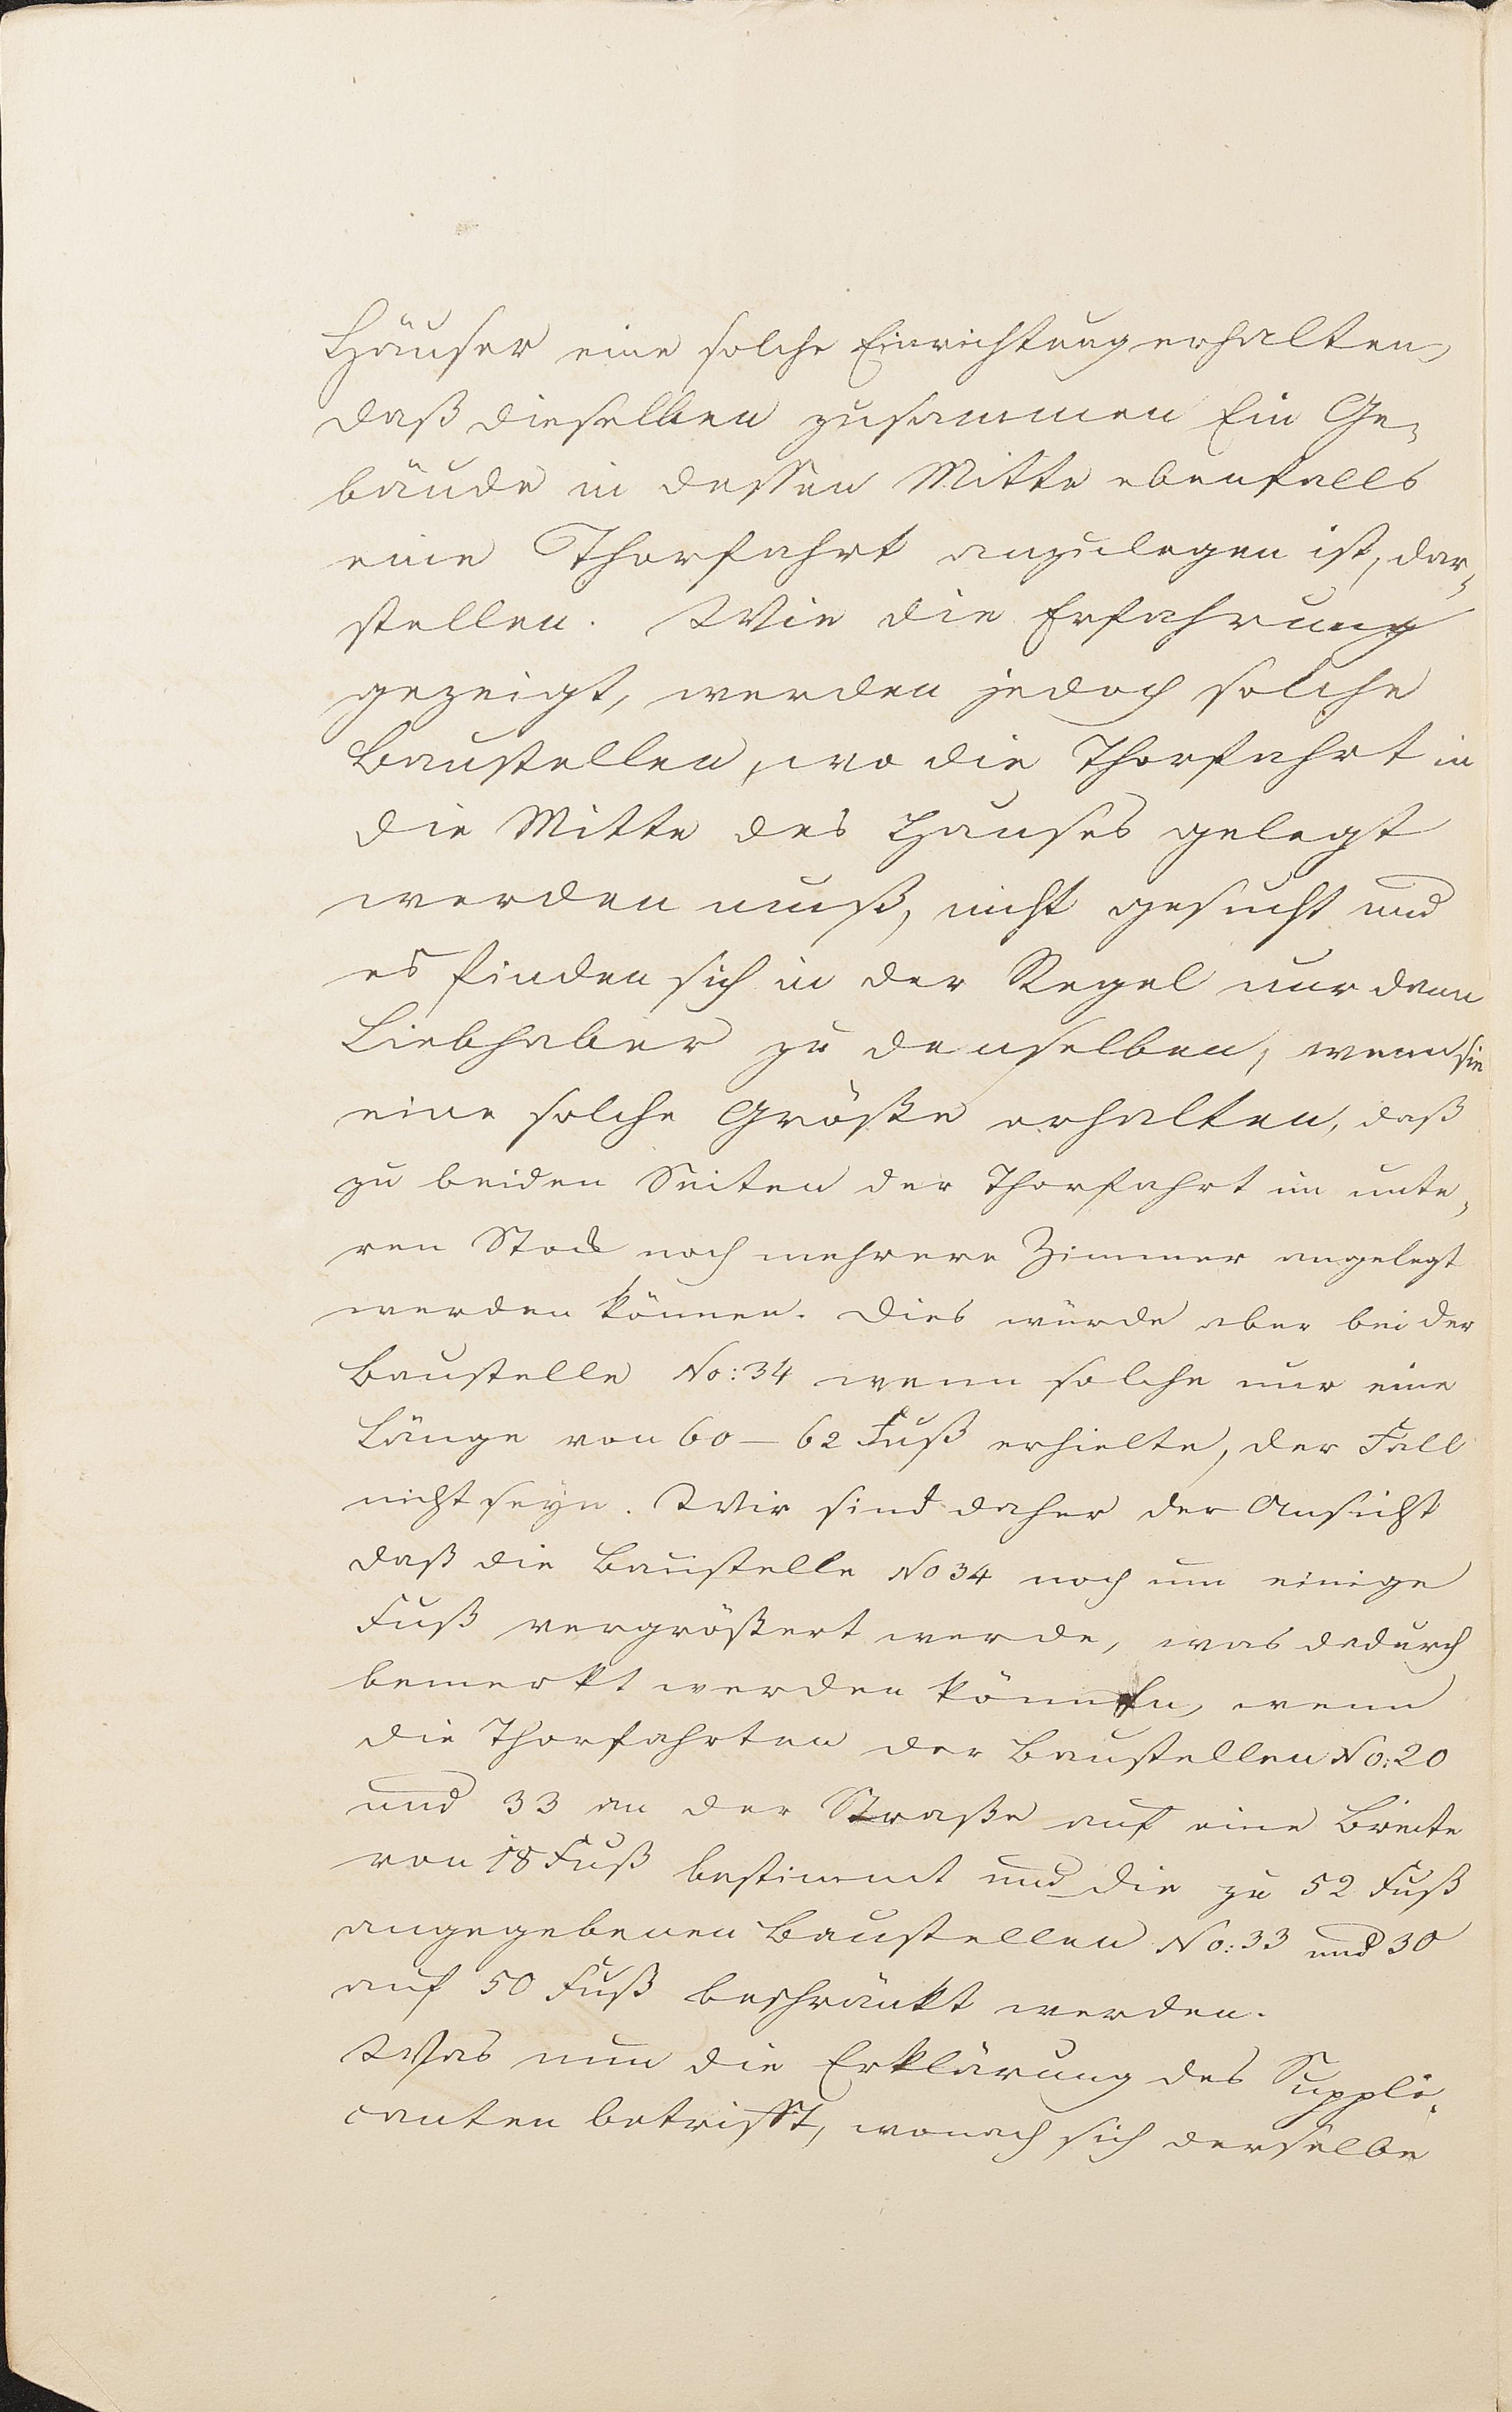 Häuser eine solche Einrichtung erhalten,
daß dieselben zusammen Ein Ge¬
bäude in dessen Mitte ebenfalls
eine Thorfahrt anzulegen ist, dar¬
stellen. Wie die Erfahrung
gezeigt, werden jedoch solche
Baustellen, wo die Thorfahrt in
die Mitte des Hauses gelegt
werden muß, nicht gesucht und
es finden sich in der Regel nur dann
Liebhaber zu denselben, wenn sie
eine solche Größe erhalten, daß
zu beiden Seiten der Thorfahrt im unte¬
ren Stock noch mehrere Zimmer angelegt
werden können. Dies würde aber bei der
Baustelle No: 34 wenn solche nur eine
Länge von 60 – 62 Fuß erhielte, der Fall
nicht seyn. Wir sind daher der Ansicht
daß die Baustelle No 34 noch um einige
Fuß vergrößert werde, was dadurch
bemerkt werden könnte, wenn
die Thorfahrten der Baustellen No: 20
und 33 an der Straße auf eine Breite
von 18 Fuß bestimmt und die zu 52 Fuß
angegebenen Baustellen No: 33 und 30
auf 50 Fuß beschränkt werden.
Was nun die Erklärung des Suppli¬
canten betrifft, wonach sich derselbe